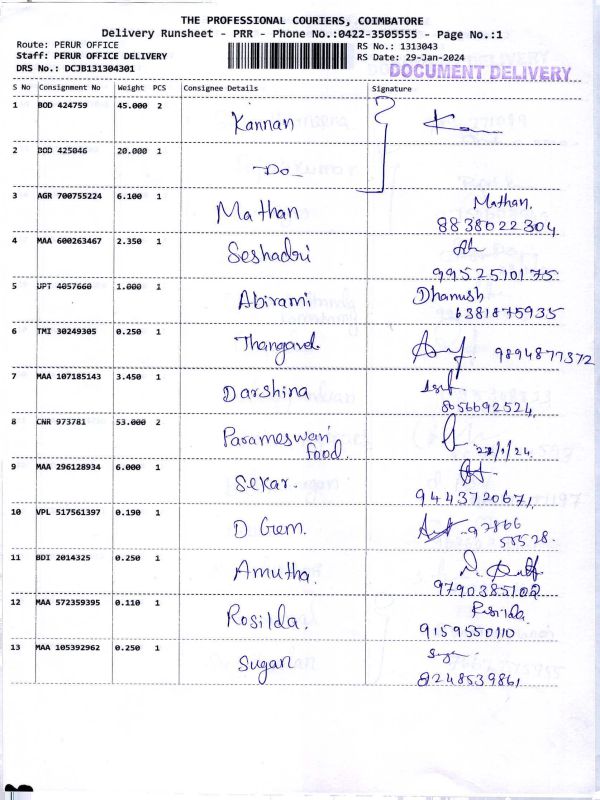 THE PROFESSIONAL COURIERS, COIMBATORE
Delivery Runsheet - PRR - Phone No.:0422-3505555 - Page No.:1
Route: PERUR OFFICE RS No.: 1313043
Staff: PERUR OFFICE DELIVERY RS Date: 29-Jan-2024
DRS No.: DCJB131304301 DOCUMENT DELIVERY
S No Consignment No Weight PCS Consignee Details Signature
1 BOD 424759 45.000 2 Kannan
2 BOD 425046 20.000 1 Do
3 AGR 700755224 6.100 1 Mathan Mathan.
8838022304
4 MAA 600263467 2.350 1 Seshadri
9952510175
5 UPT 4057660 1.000 1 Abirami Dhanush
6381875935
6 TMI 30249305 0.250 1 Thangavel 9894877372
7 MAA 107185143 3.450 1 Darshina
8056692524
8 CNR 973781 53.000 2 Parameswari
food.
9 MAA 296128934 6.000 1 Sekar.
9443720671
10 VPL 517561397 0.190 1 D Gem.
11 BDI 2014325 0.250 1 Amutha.
9790385102
12 MAA 572359395 0.110 1 Rosilda. Rosilda
9159550110
13 MAA 105392962 0.250 1 Sugan
8248539861